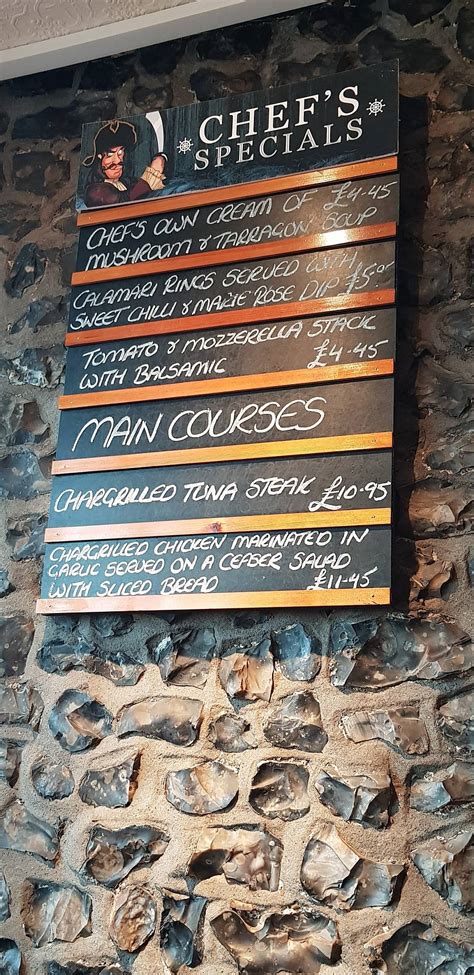 CHEF'S
SPECIALS
CHEF'S OWN CREAM OF £4-45
MUSHROOM & TARRAGON SOUP
CALAMARI RINGS SERVED WITH
SWEET CHILLI & MARIE ROSE DIP
TOMATO & MOZZERELLA STACK
WITH BALSAMIC £4-45
MAIN COURSES
CHARGRILLED TUNA STEAK £10-95
CHARGRILLED CHICKEN MARINATED IN
GARLIC SERVED ON A CEASER SALAD
WITH SLICED BREAD £11-45